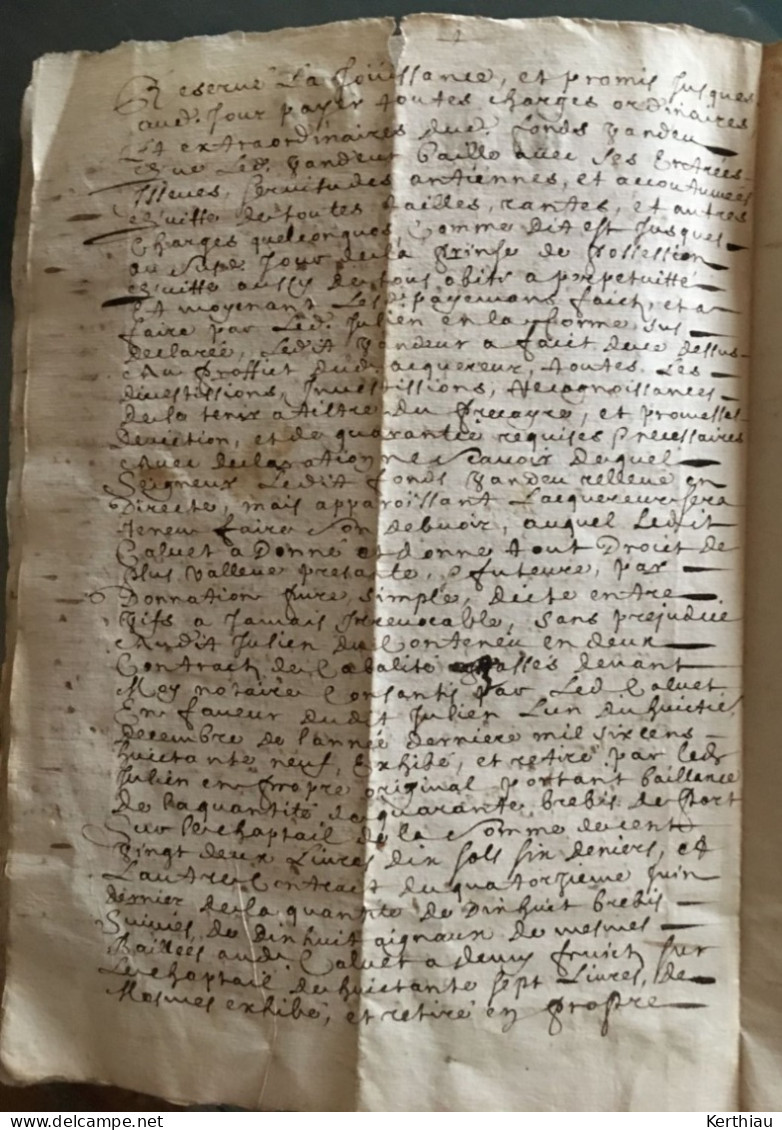 Reserve La Joüissance, et promis Jusques
aud. Jour payer toutes charges ordinaires
Et extraordinaires dud. fonds vandeu
que Led. vandeur baille avec ses Entrées
Issues, servitudes antiennes, et accoutumees
quitte de toutes tailles, rantes, et autres
charges quelconques, Comme dit est Jusques
au Jour de la prinse de possession
quitte aussy de tous obits a perpetuitté
Et moyenant Les d. payemans faich, et a
faire par Led. Julien en la forme sus
declarée, Ledit vandeur a faict de ce dessus
Au proffict dud. acquereur, toutes Les
divestissions, Investissions, Recognoissances
de la tenir a tiltre du precayre, et promesses
deviction, et de guarantie requises necessaires
Avec declaration ne scavoir de quel
Seigneur Ledit fonds vandeu relleve en
Directe, mais apparoissant Lacquereur sera
teneu faire son debvoir, auquel Ledit
Caluet a Donné et donne tout Droit de
plus valleue presante, futeure, par
Donnation pure, simple, dicte entre
vifs a Jamais Irrevocable, sans prejudice
Audit Julien du Conteneu en deux
Contrach de Cabalite passes devant
Moy notaire Consantis par Led. Caluet
En faveur dudit Julien Lun du huictie.
decembre de lannée derniere mil six cens
huictante neuf, Exhibé, et retiré par led.
Julien en propre original portant baillance
De la quantité de quarante brebis de port
Sur le chaptail de la somme de cent
vingt deux Livres dix sols six deniers, et
Lautre Contract du quatorzieme Juin
dernier de la quantité de Dixhuit brebis
Suivies de dixhuit aigneaux de mesmes
Baillées aud. Caluet a demy fruich sur
Le chaptail de huictante sept Livres, de
Mesmes exhibé, et retiré en propre
Kerthiau